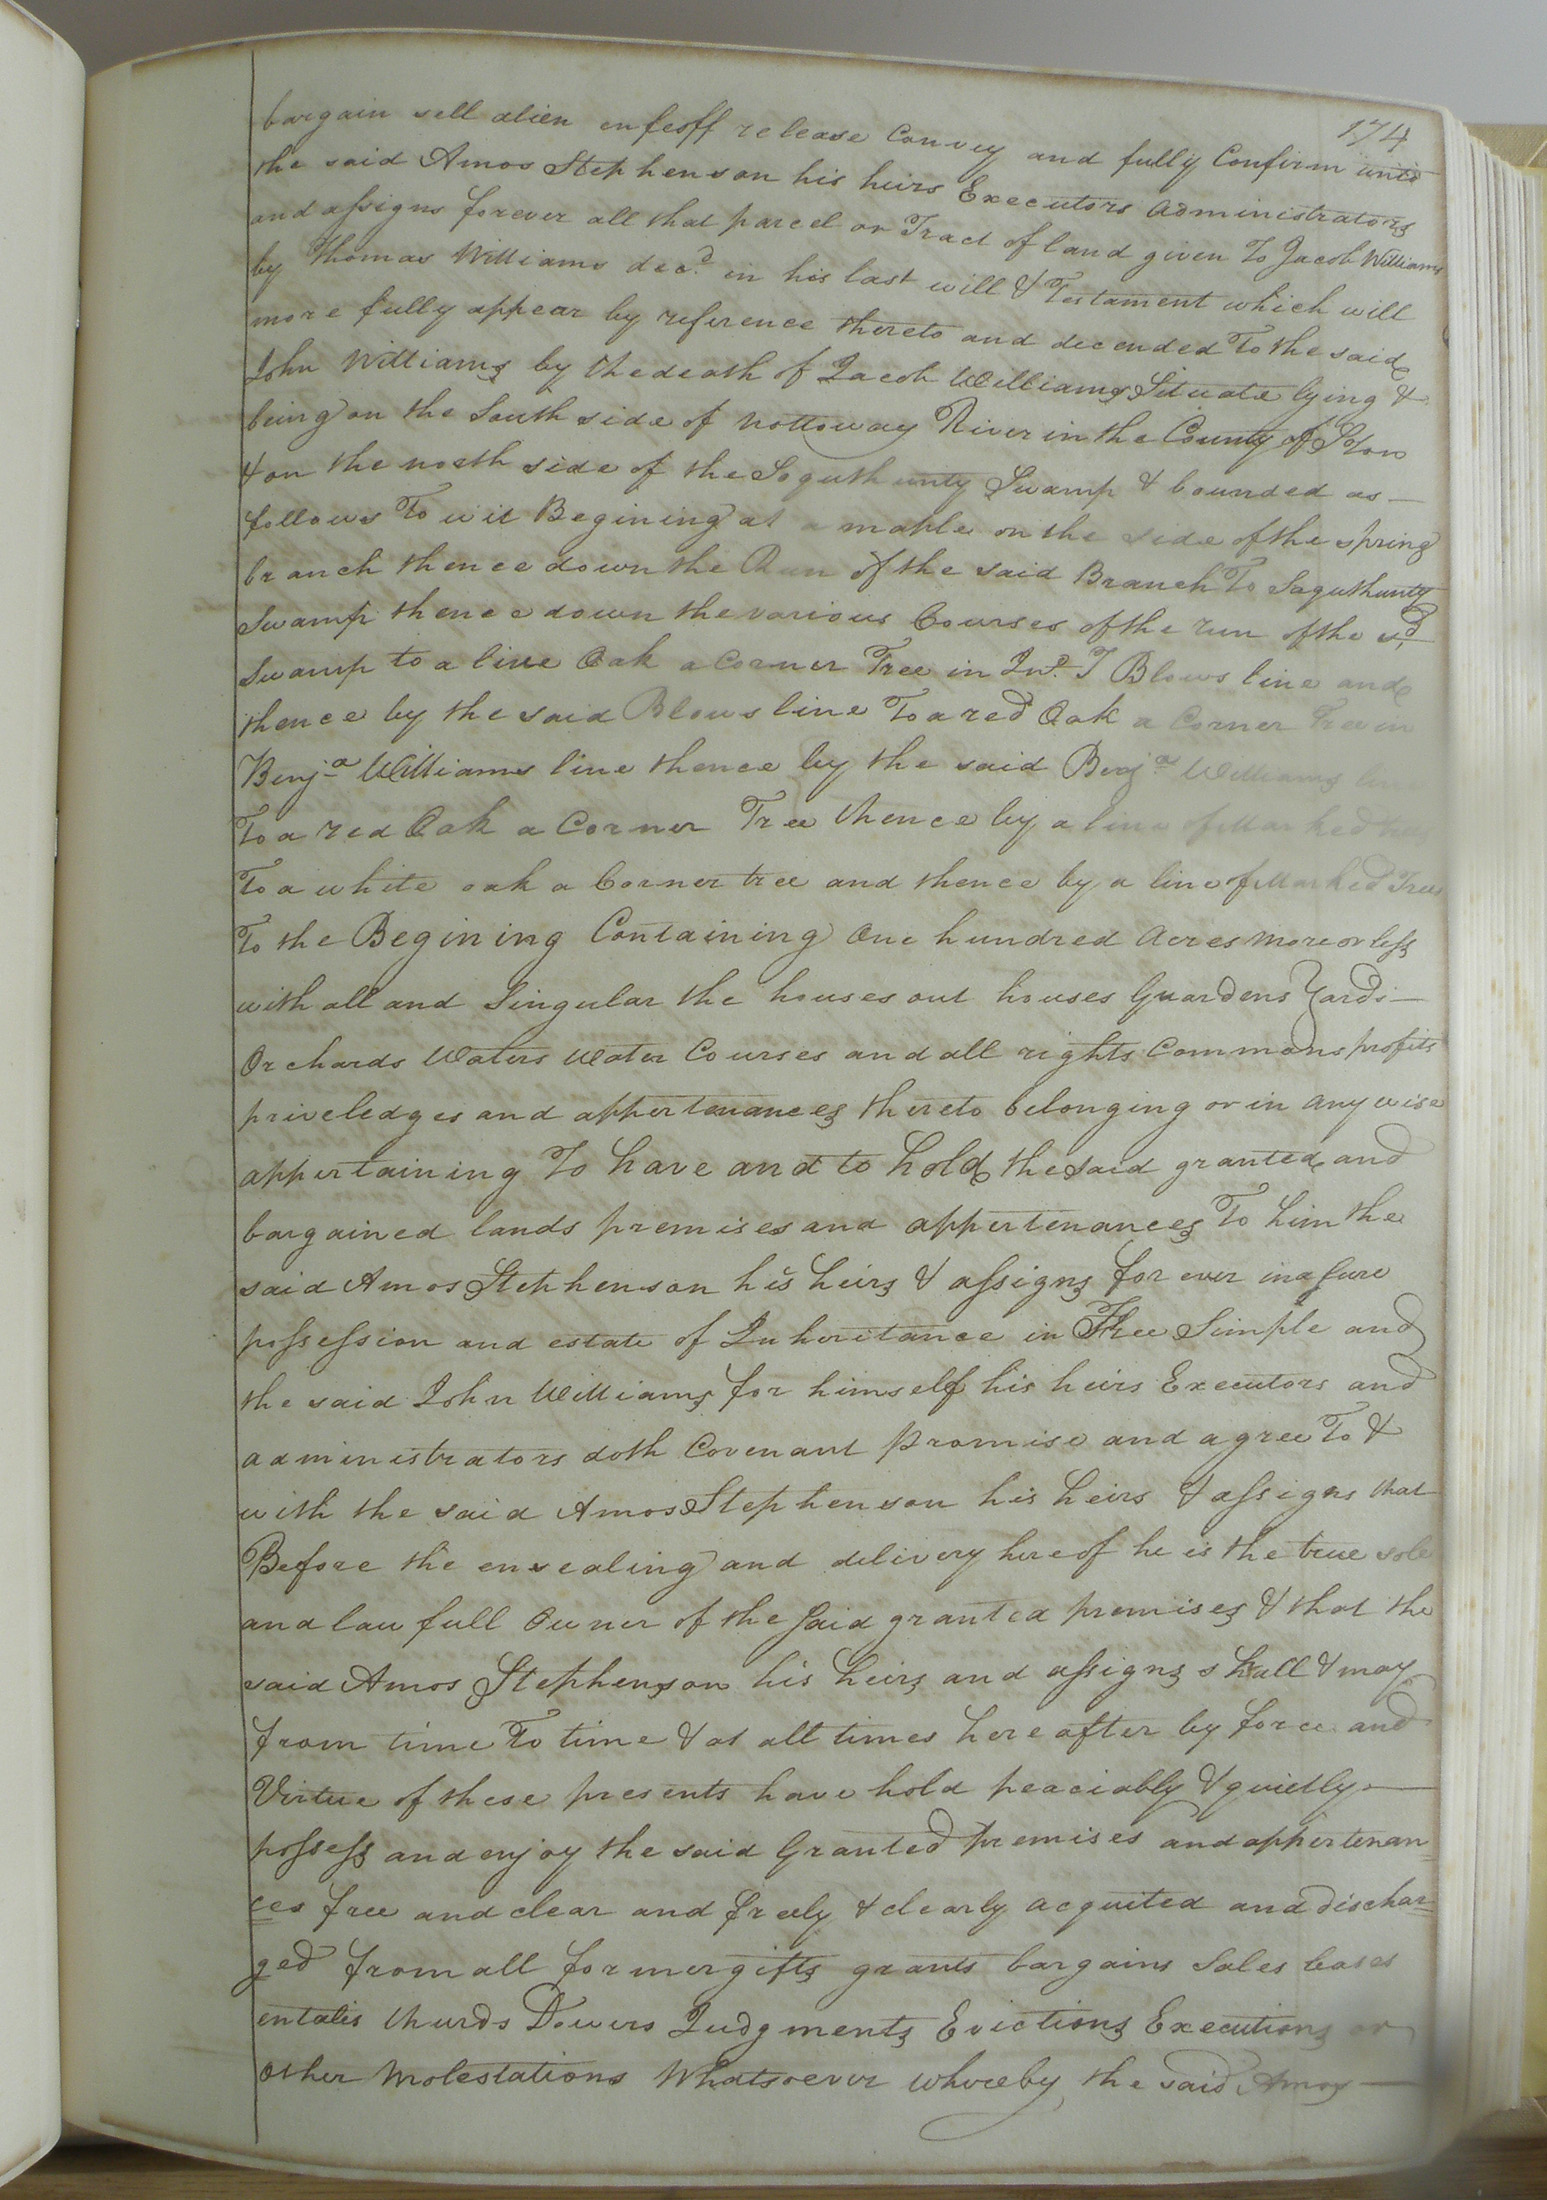 174
bargain sell alien enfeoff release Convey and fully Confirm unto
the said Amos Stephenson his heirs Executors administrators
and assigns forever all that parcel or Tract of land given To Jacob Williams
by Thomas Williams decd. in his last will & Testament which will
more fully appear by reference thereto and decended To the said
John Williams by the death of Jacob Williams Situate lying &
being on the South side of Nottoway River in the County of Ston
& on the north side of the Soguthunty Swamp & bounded as
follows To wit Begining at a maple on the side of the spring
branch thence down the Run of the said Branch To Soguthunty
Swamp thence down the various Courses of the run of the sd
Swamp to a live Oak a Corner Tree in Jno. T Blows line and
thence by the said Blows line To a red Oak a Corner Tree in
Benja Williams line thence by the said Benja Williams line
To a red Oak a Corner Tree thence by a line of Marked
To a white oak a Corner tree and thence by a line of Marked Trees
To the Begining Containing One hundred Acres more or less
with all and Singular the houses out houses Guardens Yards
Orchards Waters Water Courses and all rights Commons profits
priveledges and appertenances thereto belonging or in any wise
appertaining To have and to hold the said granted and
bargained lands premises and appertenances To him the
said Amos Stephenson his heirs & assigns for ever in a sure
possession and estate of Inheritance in Fhee Simple and
the said John Williams for himself his heirs Executors and
administrators doth Covenant promise and agree To &
with the said Amos Stephenson his heirs & assigns that
Before the ensealing and delivery hereof he is the true sole
and lawfull Owner of the said granted premises & that the
said Amos Stephenson his heirs and assigns shall & may
from time To time & at all times here after by force and
Virtue of these presents have hold peaciably & quietly
possess and enjoy the said Granted premises and appertenan
ces free and clear and freely & clearly acquited and dischar
ged from all former gifts grants bargains Sales leases
entales thurds Dowers Judgments Evictions Executions or
other Molestations Whatsoever whereby the said Amos